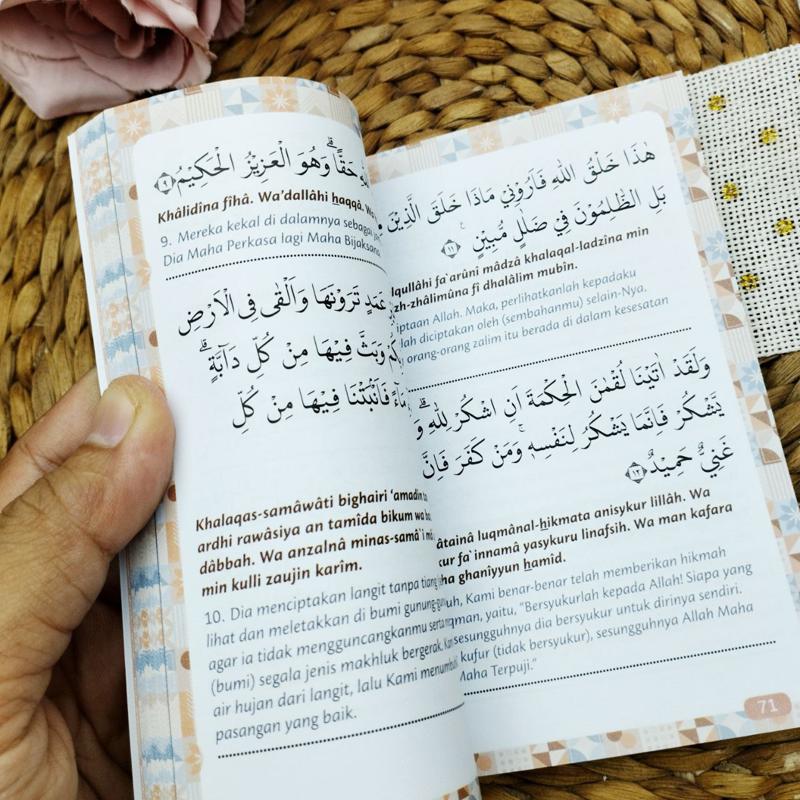 حَقًّا ۗوَهُوَ الْعَزِيْزُ الْحَكِيْمُ ٩
Khâlidîna fîhâ. Wa'dallâhi haqqâ.
9. Mereka kekal di dalamnya sebagai
Dia Maha Perkasa lagi Maha Bijaksana
عَمَدٍ تَرَوْنَهَا وَاَلْقٰى فِى الْاَرْضِ
وَبَثَّ فِيْهَا مِنْ كُلِّ دَاۤبَّةٍ ۗ
فَاَنْۢبَتْنَا فِيْهَا مِنْ كُلِّ
Khalaqas-samâwâti bighairi 'amadin
ardhi rawâsiya an tamîda bikum wa
dâbbah. Wa anzalnâ minas-samâ`i
min kulli zaujin karîm.
10. Dia menciptakan langit tanpa tiang
lihat dan meletakkan di bumi gunung-
agar ia tidak mengguncangkanmu serta
(bumi) segala jenis makhluk bergerak.
air hujan dari langit, lalu Kami
pasangan yang baik.
هٰذَا خَلْقُ اللّٰهِ فَاَرُوْنِيْ مَاذَا خَلَقَ الَّذِيْنَ
بَلِ الظّٰلِمُوْنَ فِيْ ضَلٰلٍ مُّبِيْنٍ ࣖ ١١
fa`arûnî mâdzâ khalaqal-ladzîna min
zh-zhâlimûna fî dhalâlim mubîn.
Allah. Maka, perlihatkanlah kepadaku
diciptakan oleh (sembahanmu) selain-Nya.
orang-orang zalim itu berada di dalam kesesatan
وَلَقَدْ اٰتَيْنَا لُقْمٰنَ الْحِكْمَةَ اَنِ اشْكُرْ لِلّٰهِ ۗ
يَّشْكُرْ فَاِنَّمَا يَشْكُرُ لِنَفْسِهٖ ۚوَمَنْ كَفَرَ فَاِنَّ
غَنِيٌّ حَمِيْدٌ ١٢
luqmânal-hikmata anisykur lillâh. Wa
fa`innamâ yasykuru linafsih. Wa man kafara
ghaniyyun hamîd.
Kami benar-benar telah memberikan hikmah
yaitu, "Bersyukurlah kepada Allah! Siapa yang
sesungguhnya dia bersyukur untuk dirinya sendiri.
kufur (tidak bersyukur), sesungguhnya Allah Maha
Maha Terpuji."
71